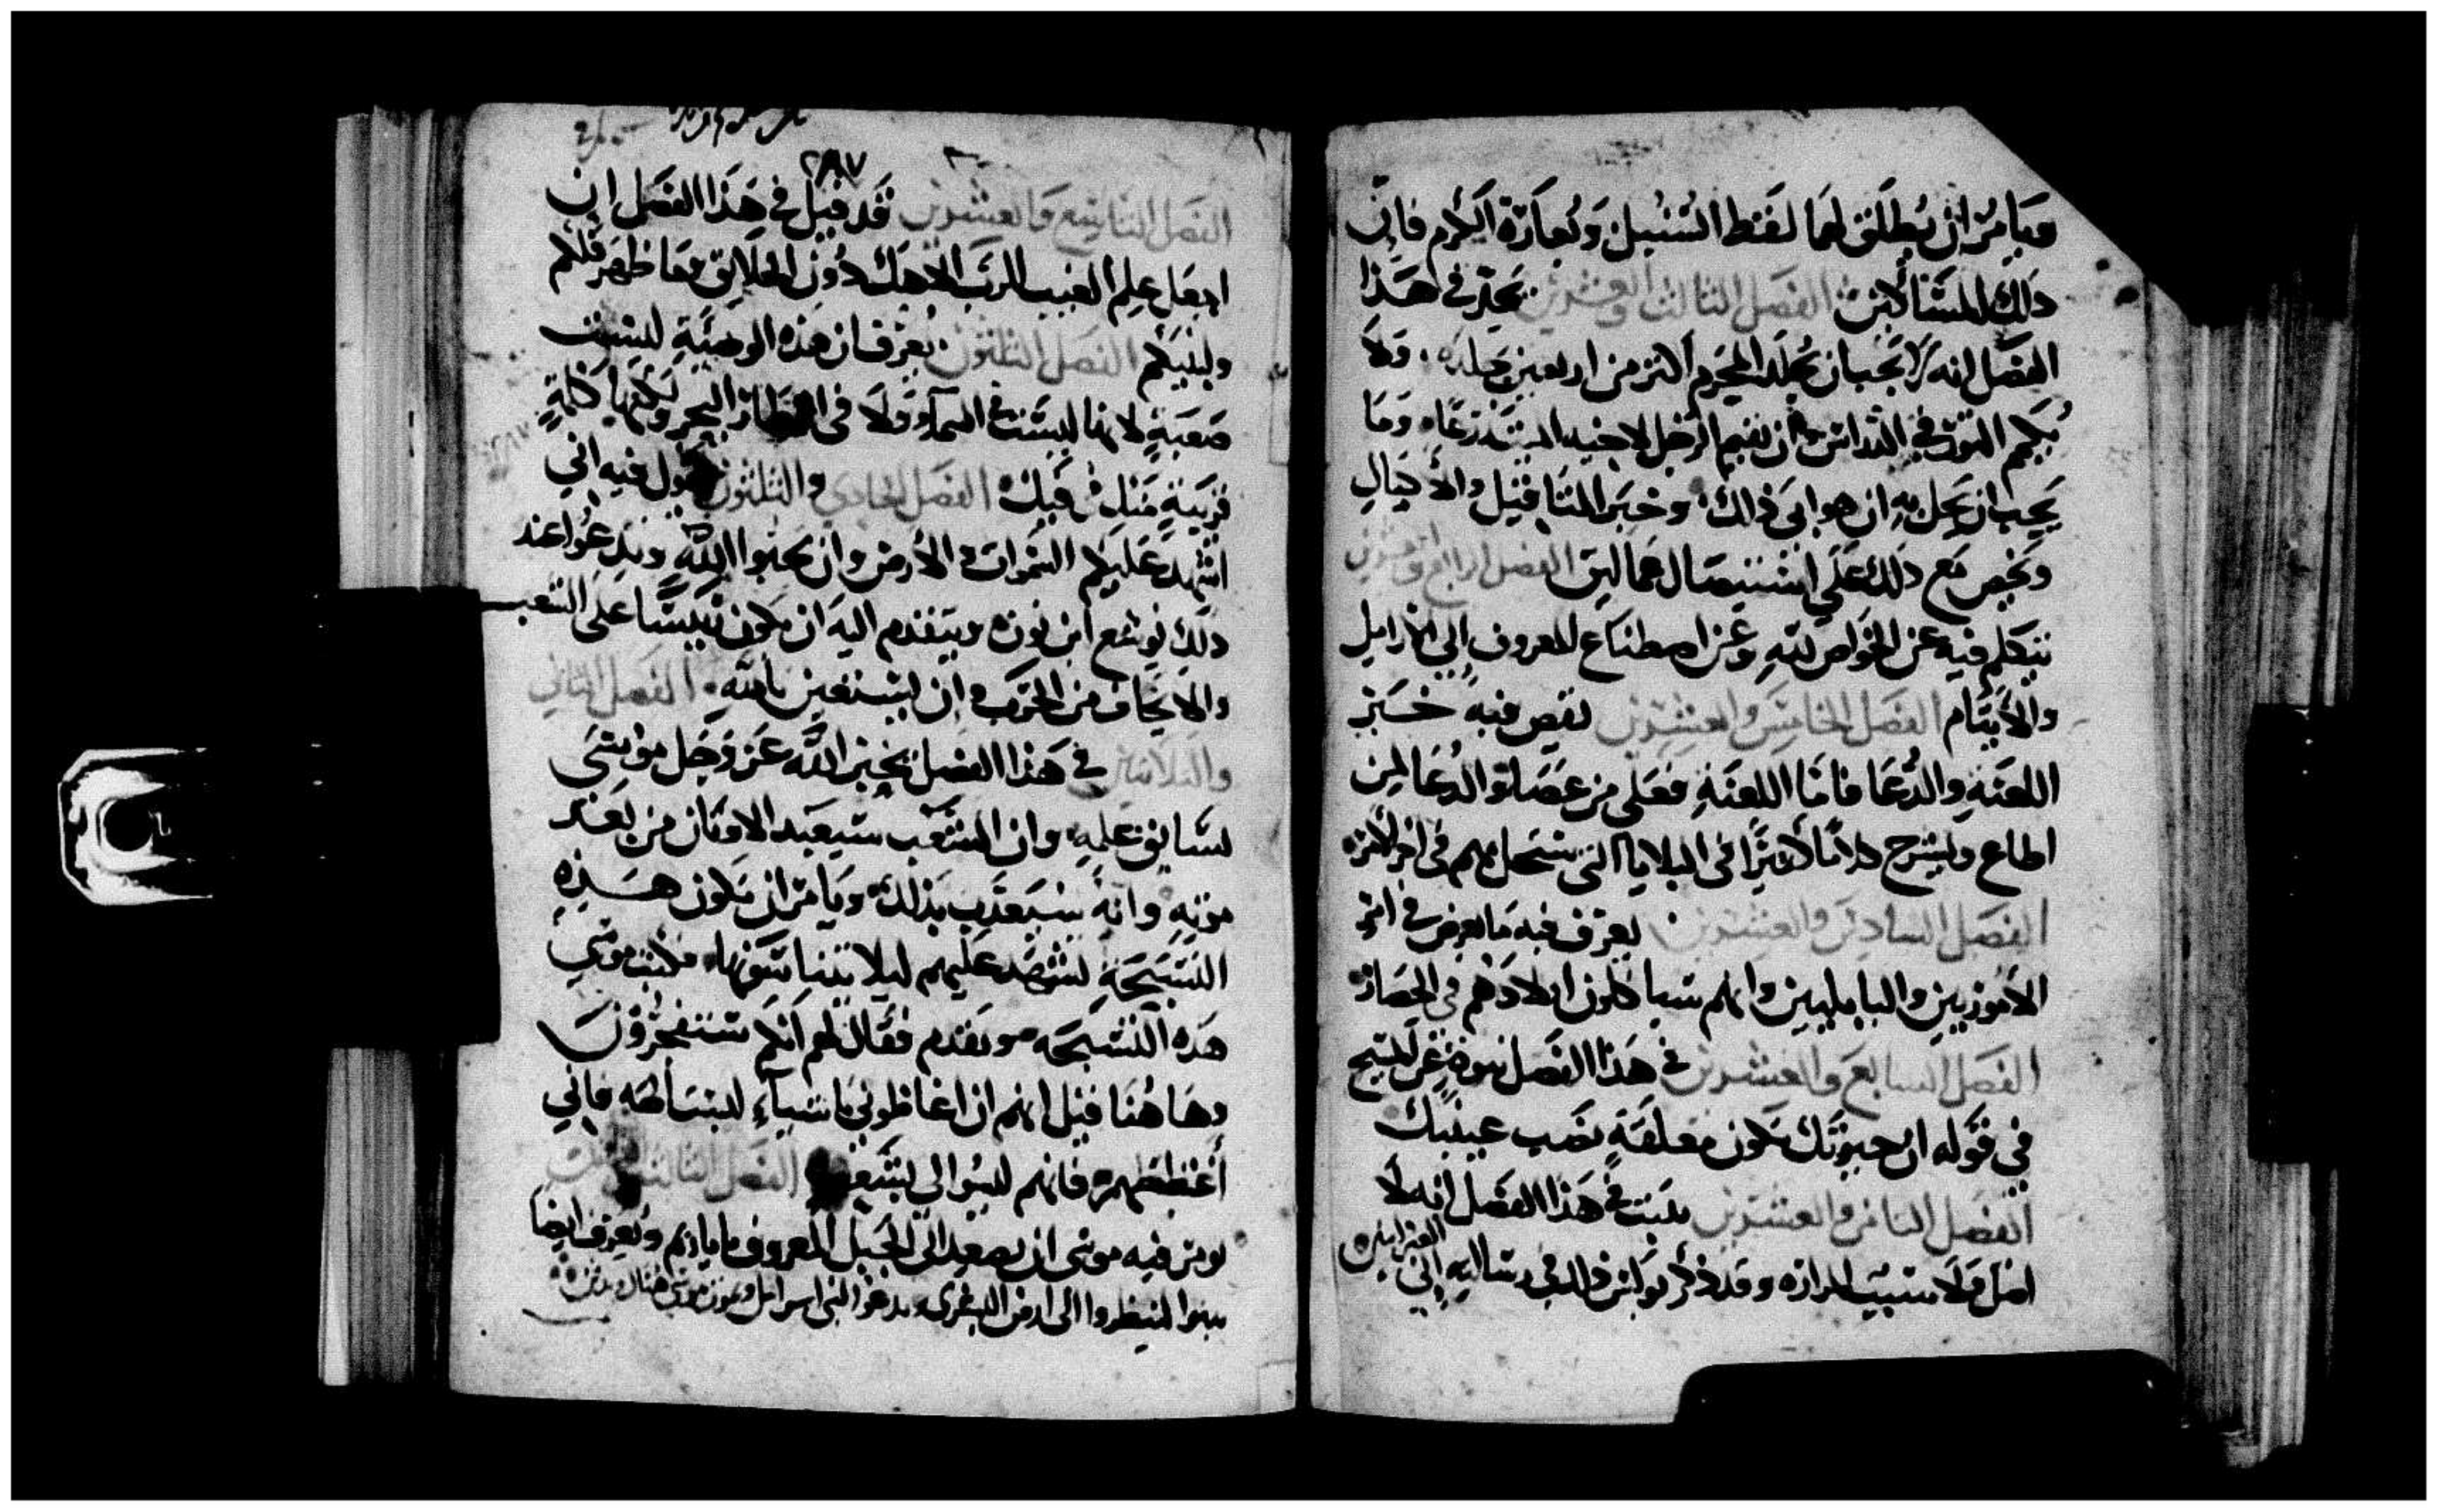 ويامر ان يطلق لهما لفظ السنبل ولعابرة الكرم فان
ذلك المسالاين الفصل الثالث والعشرين يخبر في هذا
الفصل انه لا يجب ان يجلد المجرم اكثر من اربعين جلدة ولا
يكم الثور في الدراس وان يقيم الرجل لاخيه الميت زرعا وما
يجب ان يحل به ان هو ابى ذلك وخبر المثاقيل والاكيال
ويخص مع ذلك على استيصال عماليق الفصل الرابع وعشرين
يتكلم فيه عن الخواص لله وعن اصطناع المعروف الى الارامل
والايتام الفصل الخامس والعشرين يقص فيه خبر
اللعنة والدعا فاما اللعنة فعلى من عصا والدعا لمن
اطاع ويشرح كلاما كثيرا في البلايا التي ستحل بهم في اخر الامر
الفصل السادس والعشرين يعرف فيه ما يعرض في امر
الاموريين والبابليين وانهم سياكلون اولادهم في الحصار
الفصل السابع والعشرين في هذا الفصل نبوة عن المسيح
في قوله ان حيوتك تكون معلقة نصب عينيك
الفصل الثامن والعشرين يثبت في هذا الفصل انه لا
اصل ولا سيئت المراره وقد ذكر بولس ذلك في رسالته الى
العبرانيين
٢٨٧
الفصل التاسع والعشرين قد قيل في هذا الفصل ان
اجعل علم الغيب للرب الاهك دون الخلايق وما ظهر فلكم
ولبنيكم الفصل الثلثون يعرف ان هذه الوصية ليست
صعبة لانها ليست في السماء ولا في اقطار البحر ولكنها كلمة
قريبة منك في فيك الفصل الحادي والثلثون يقول فيه اني
اشهد عليكم السموات والارض وان يحبوا الله ويدعوا عند
ذلك يوشع ابن نون ويتقدم اليه ان يكون رييسا على الشعب
والا يخاف من الحرب وان يستعين بالله الفصل الثاني
والثلاثين في هذا الفصل يخبر الله عز وجل موسى
بسابق علمه وان الشعب سيعبد الاوثان من بعد
موته وانه سيعذب بذلك ويامر ان يكون هذه
التسبحة لتشهد عليهم ليلا يتناسونها فكتب موسى
هذه التسبحه وتقدم فقال لهم انكم ستفجرون
وهاهنا قيل انهم ان اغاظوني باشياء ليست الهه فاني
أغيظهم فانهم ليسوا لي بشعب الفصل الثالث والثلثين
يومر فيه موسى ان يصعد الى الجبل المعروف باباريم ويعرف ايضا